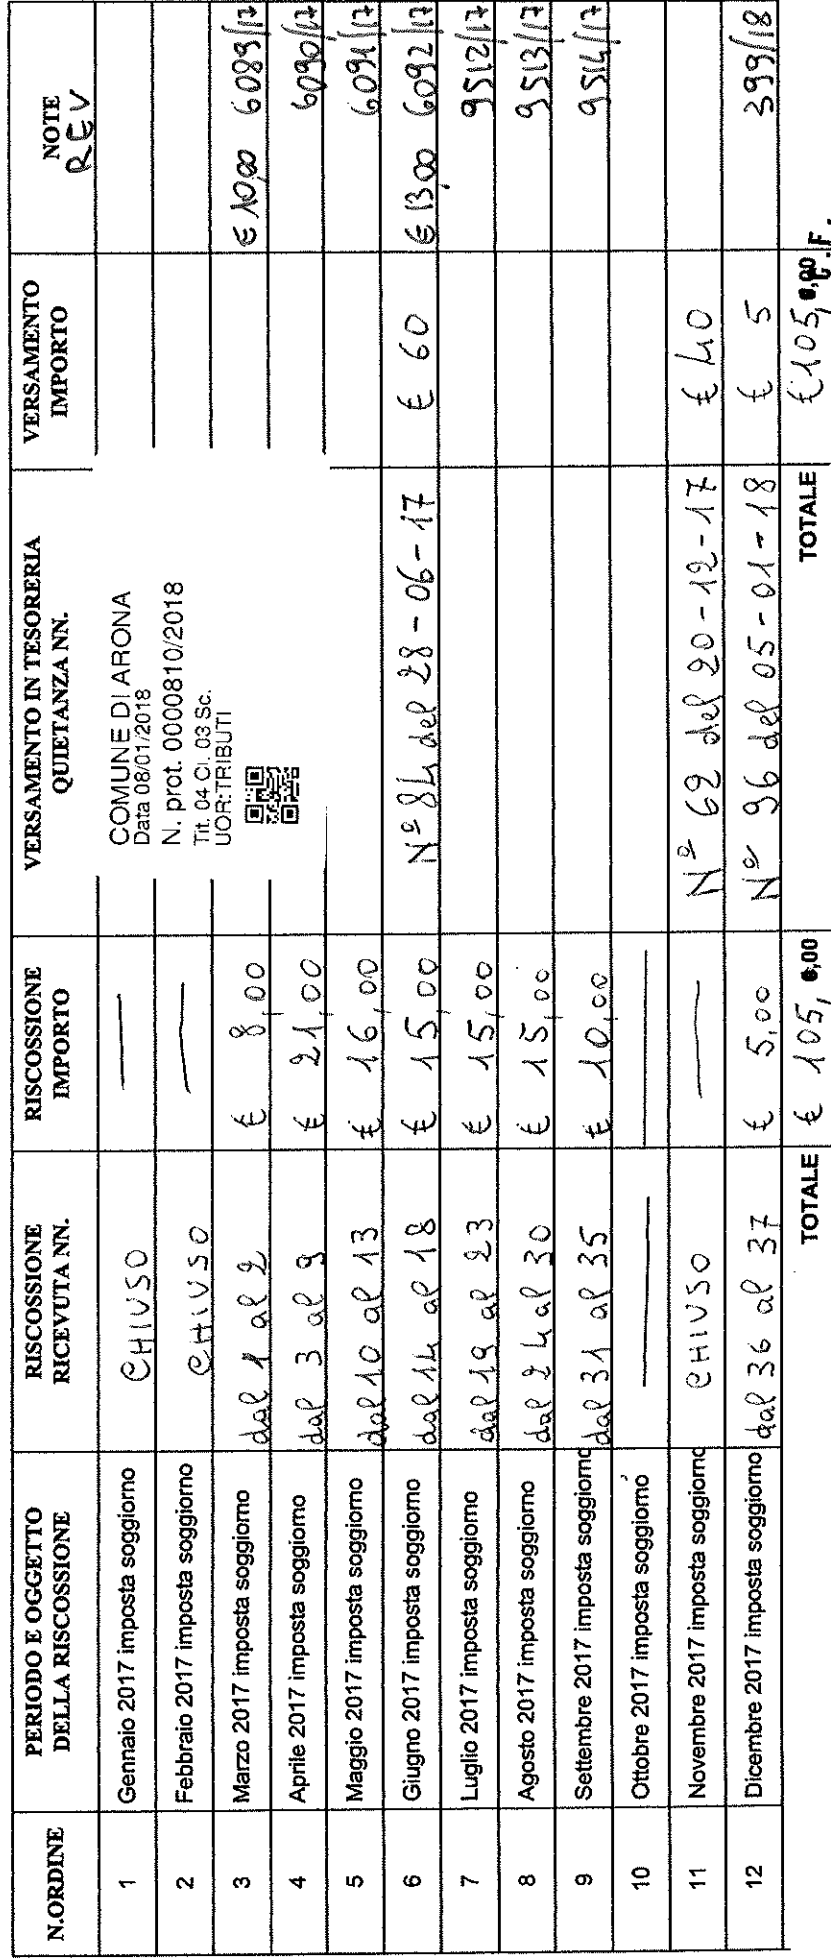 N.ORDINE PERIODO E OGGETTO DELLA RISCOSSIONE RISCOSSIONE RICEVUTA NN. RISCOSSIONE IMPORTO VERSAMENTO IN TESORERIA QUIETANZA NN. VERSAMENTO IMPORTO NOTE REV
1 Gennaio 2017 imposta soggiorno CHIUSO —
2 Febbraio 2017 imposta soggiorno CHIUSO —
COMUNE DI ARONA
Data 08/01/2018
N. prot. 0000810/2018
Tit. 04 Cl. 03 Sc.
UOR:TRIBUTI
3 Marzo 2017 imposta soggiorno dal 1 al 2 € 8,00 € 10,00 6089/17
4 Aprile 2017 imposta soggiorno dal 3 al 9 € 21,00 6090/17
5 Maggio 2017 imposta soggiorno dal 10 al 13 € 16,00 6091/17
6 Giugno 2017 imposta soggiorno dal 14 al 18 € 15,00 Nº 84 del 28-06-17 € 60 € 13,00 6092/17
7 Luglio 2017 imposta soggiorno dal 19 al 23 € 15,00 9512/17
8 Agosto 2017 imposta soggiorno dal 24 al 30 € 15,00 9513/17
9 Settembre 2017 imposta soggiorno dal 31 al 35 € 10,00 9514/17
10 Ottobre 2017 imposta soggiorno — —
11 Novembre 2017 imposta soggiorno CHIUSO — Nº 62 del 20-12-17 € 40
12 Dicembre 2017 imposta soggiorno dal 36 al 37 € 5,00 Nº 96 del 05-01-18 € 5 399/18
TOTALE € 105,00 TOTALE € 105,00